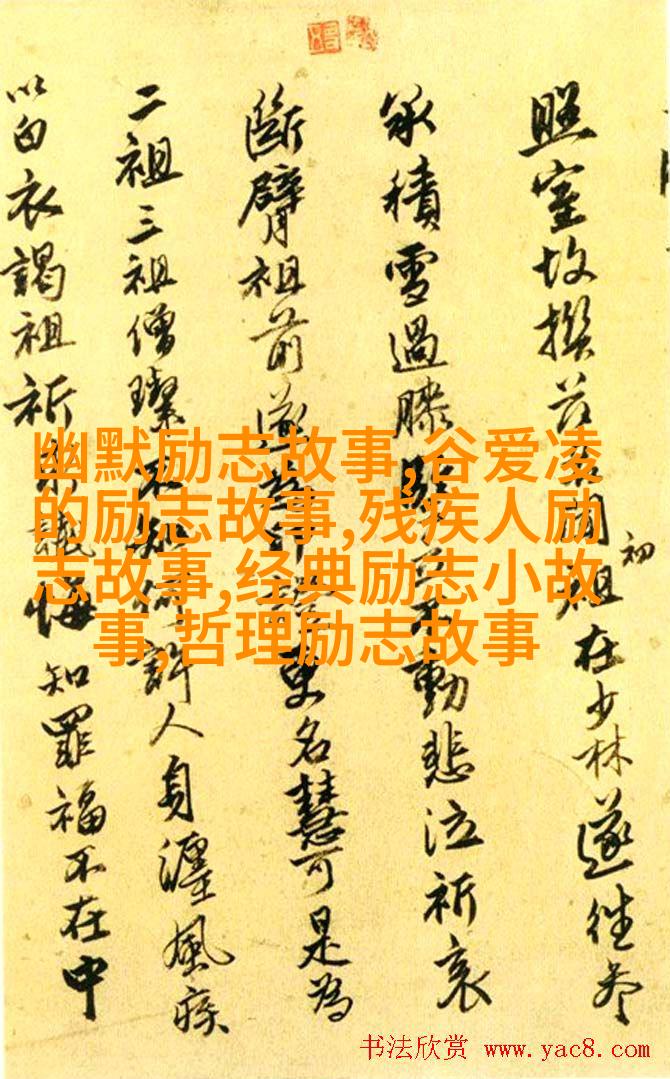 照室故撰聞初祖在少林遂往參
承積雪過膝堅立不動悲泣祈哀
斷臂祖前遂更名慧可是為
二祖三祖僧璨不知何許人身纏風疾
以白衣謁祖祈懺悔知罪福不在中
幽默励志故事,谷爱凌
的励志故事,残疾人励
志故事,经典励志小故
事,哲理励志故事
书法欣赏 www.yac8.com